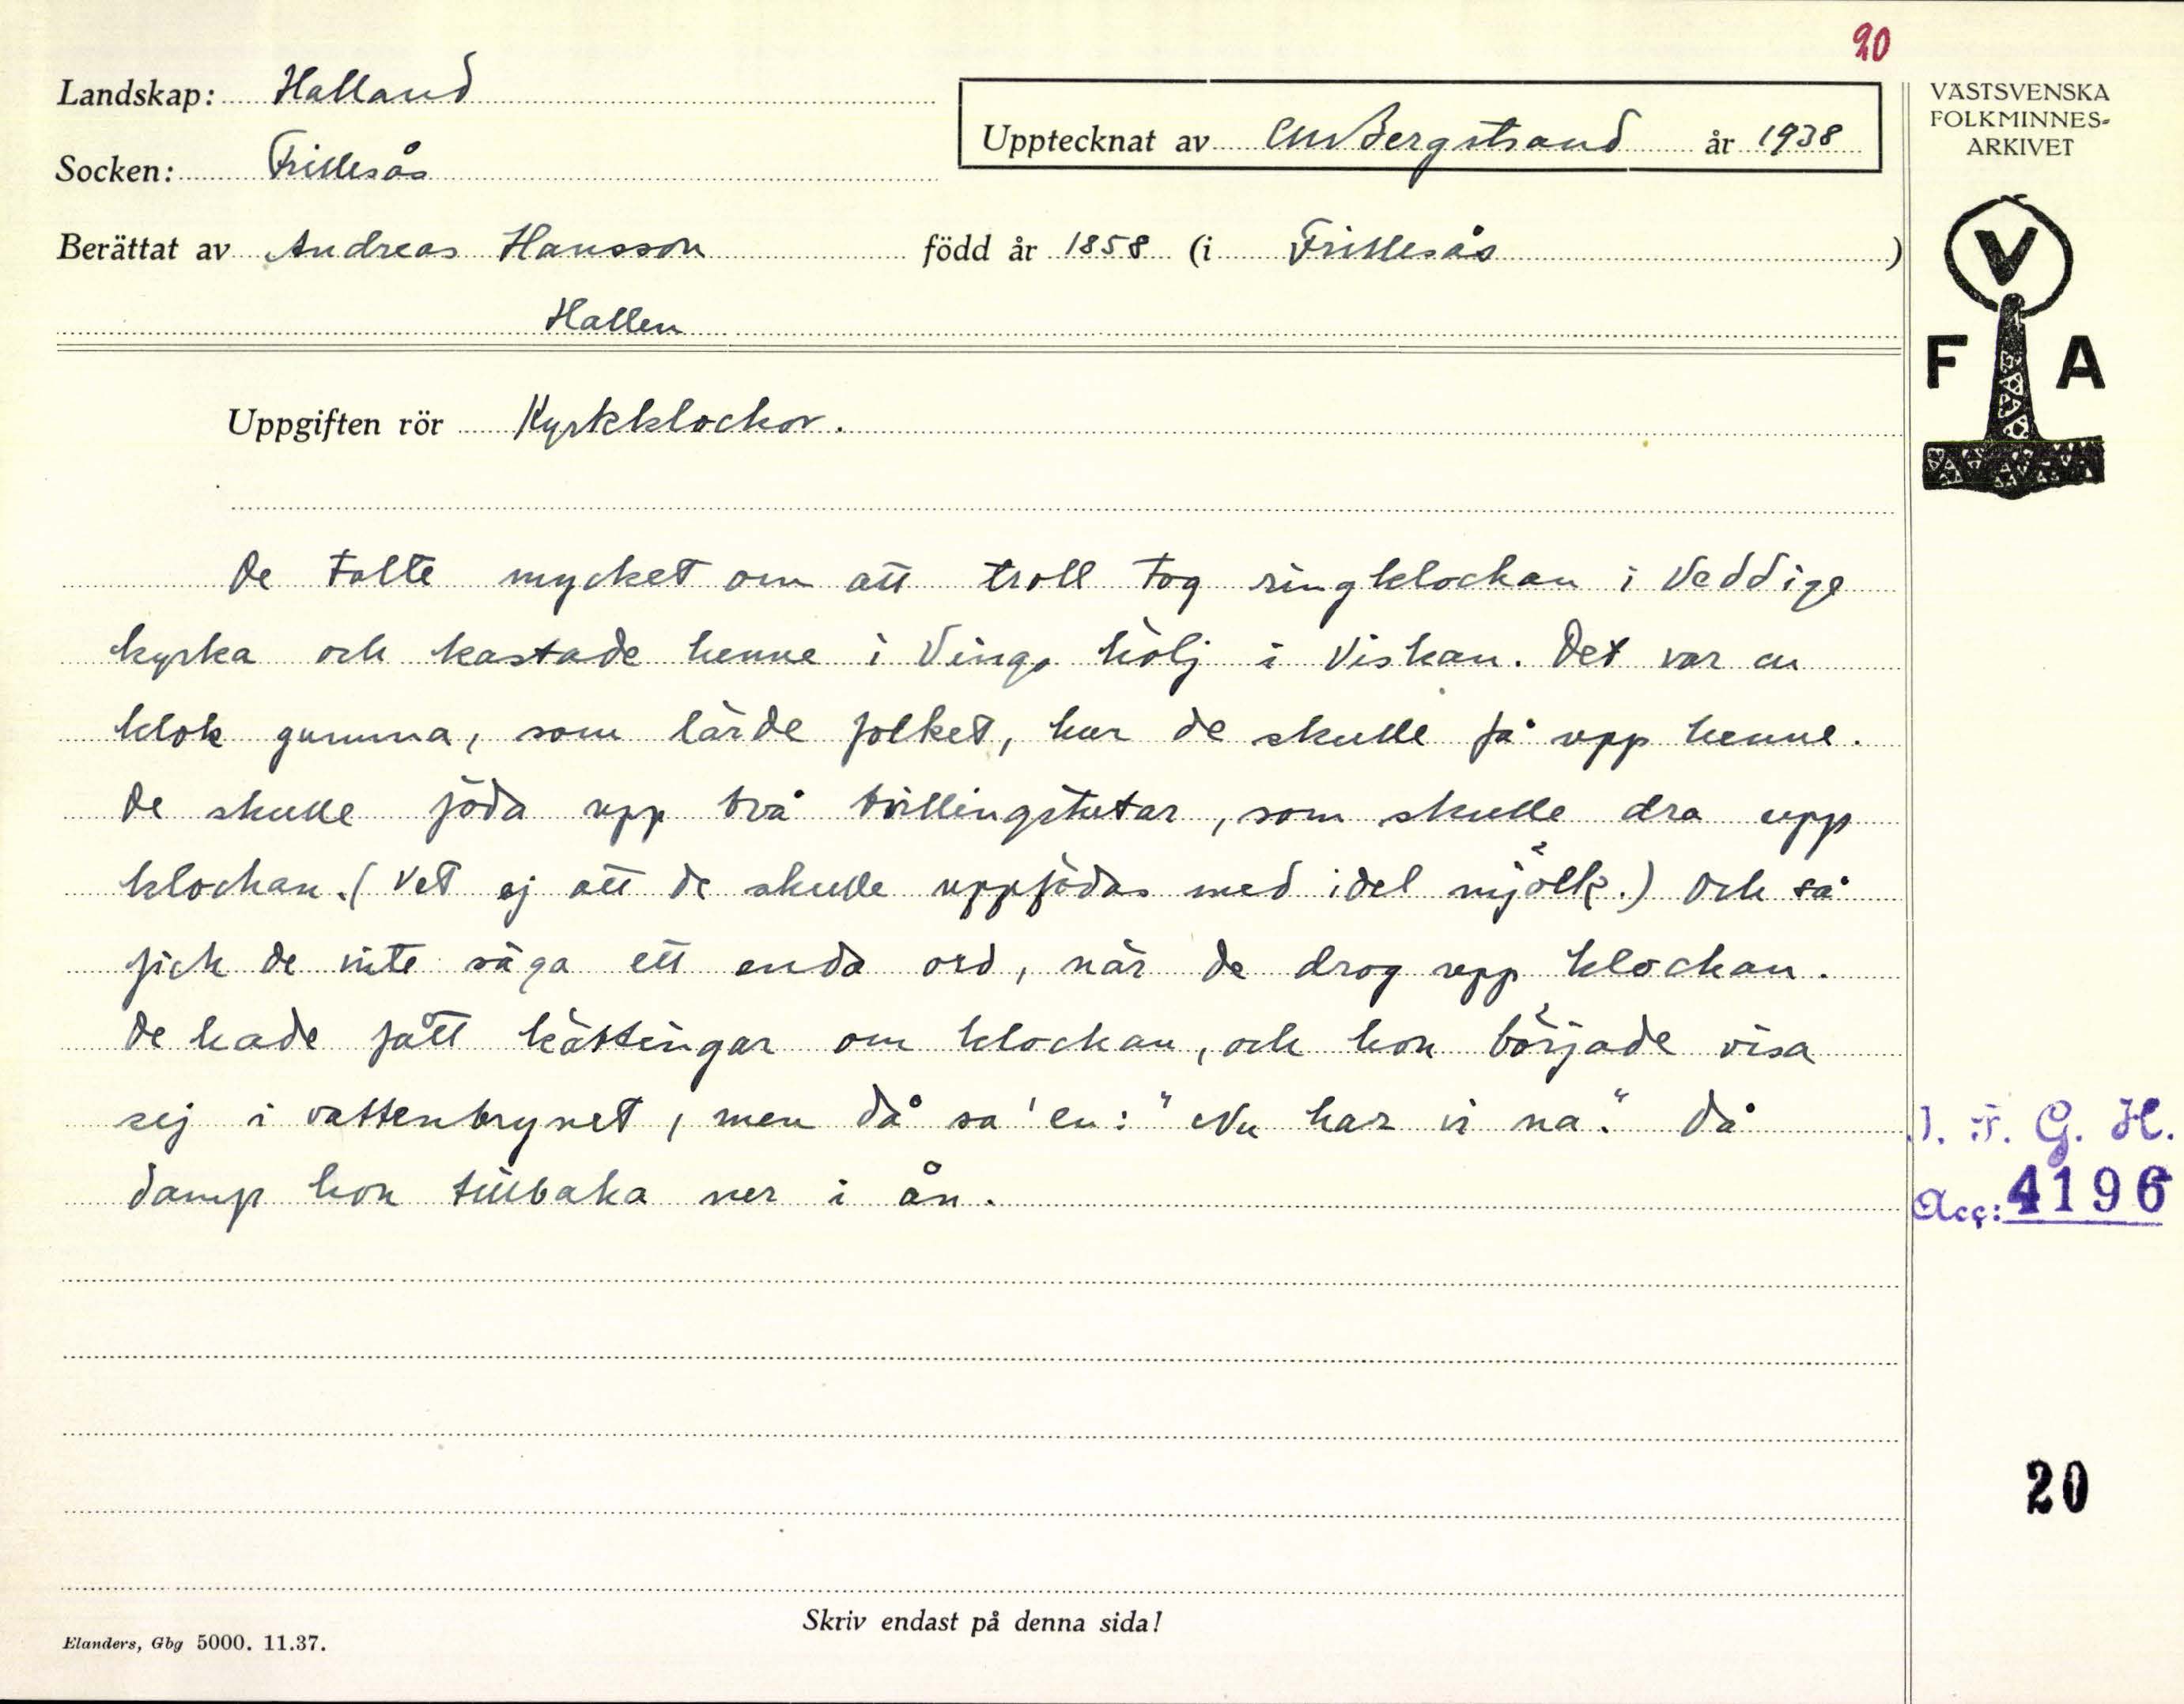 20
Landskap: Halland
Upptecknat av CMBergstrand år 1938
Socken: Frillesås
Berättat av Andreas Hansson född år 1858 (i Frillesås)
Hallen
VÄSTSVENSKA
FOLKMINNES-
ARKIVET
V
F A
Uppgiften rör Kyrkklockor.
De talte mycket om att troll tog ringklockan i Veddige
kyrka och kastade henne i Vinga hölj i Viskan. Det var en
klok gumma, som lärde folket, hur de skulle få upp henne.
De skulle föda upp två tvillingstutar, som skulle dra upp
klockan. (Vet ej att de skulle uppfödas med idel mjölk.) Och så
fick de inte säga ett enda ord, när de drog upp klockan.
De hade fått kättingar om klockan, och hon började visa
sej i vattenbrynet, men då sa' en: "Nu har vi na." Då
damp hon tillbaka ner i ån.
I. F. G. H.
Acc: 4196
20
Skriv endast på denna sida!
Elanders, Gbg 5000. 11.37.